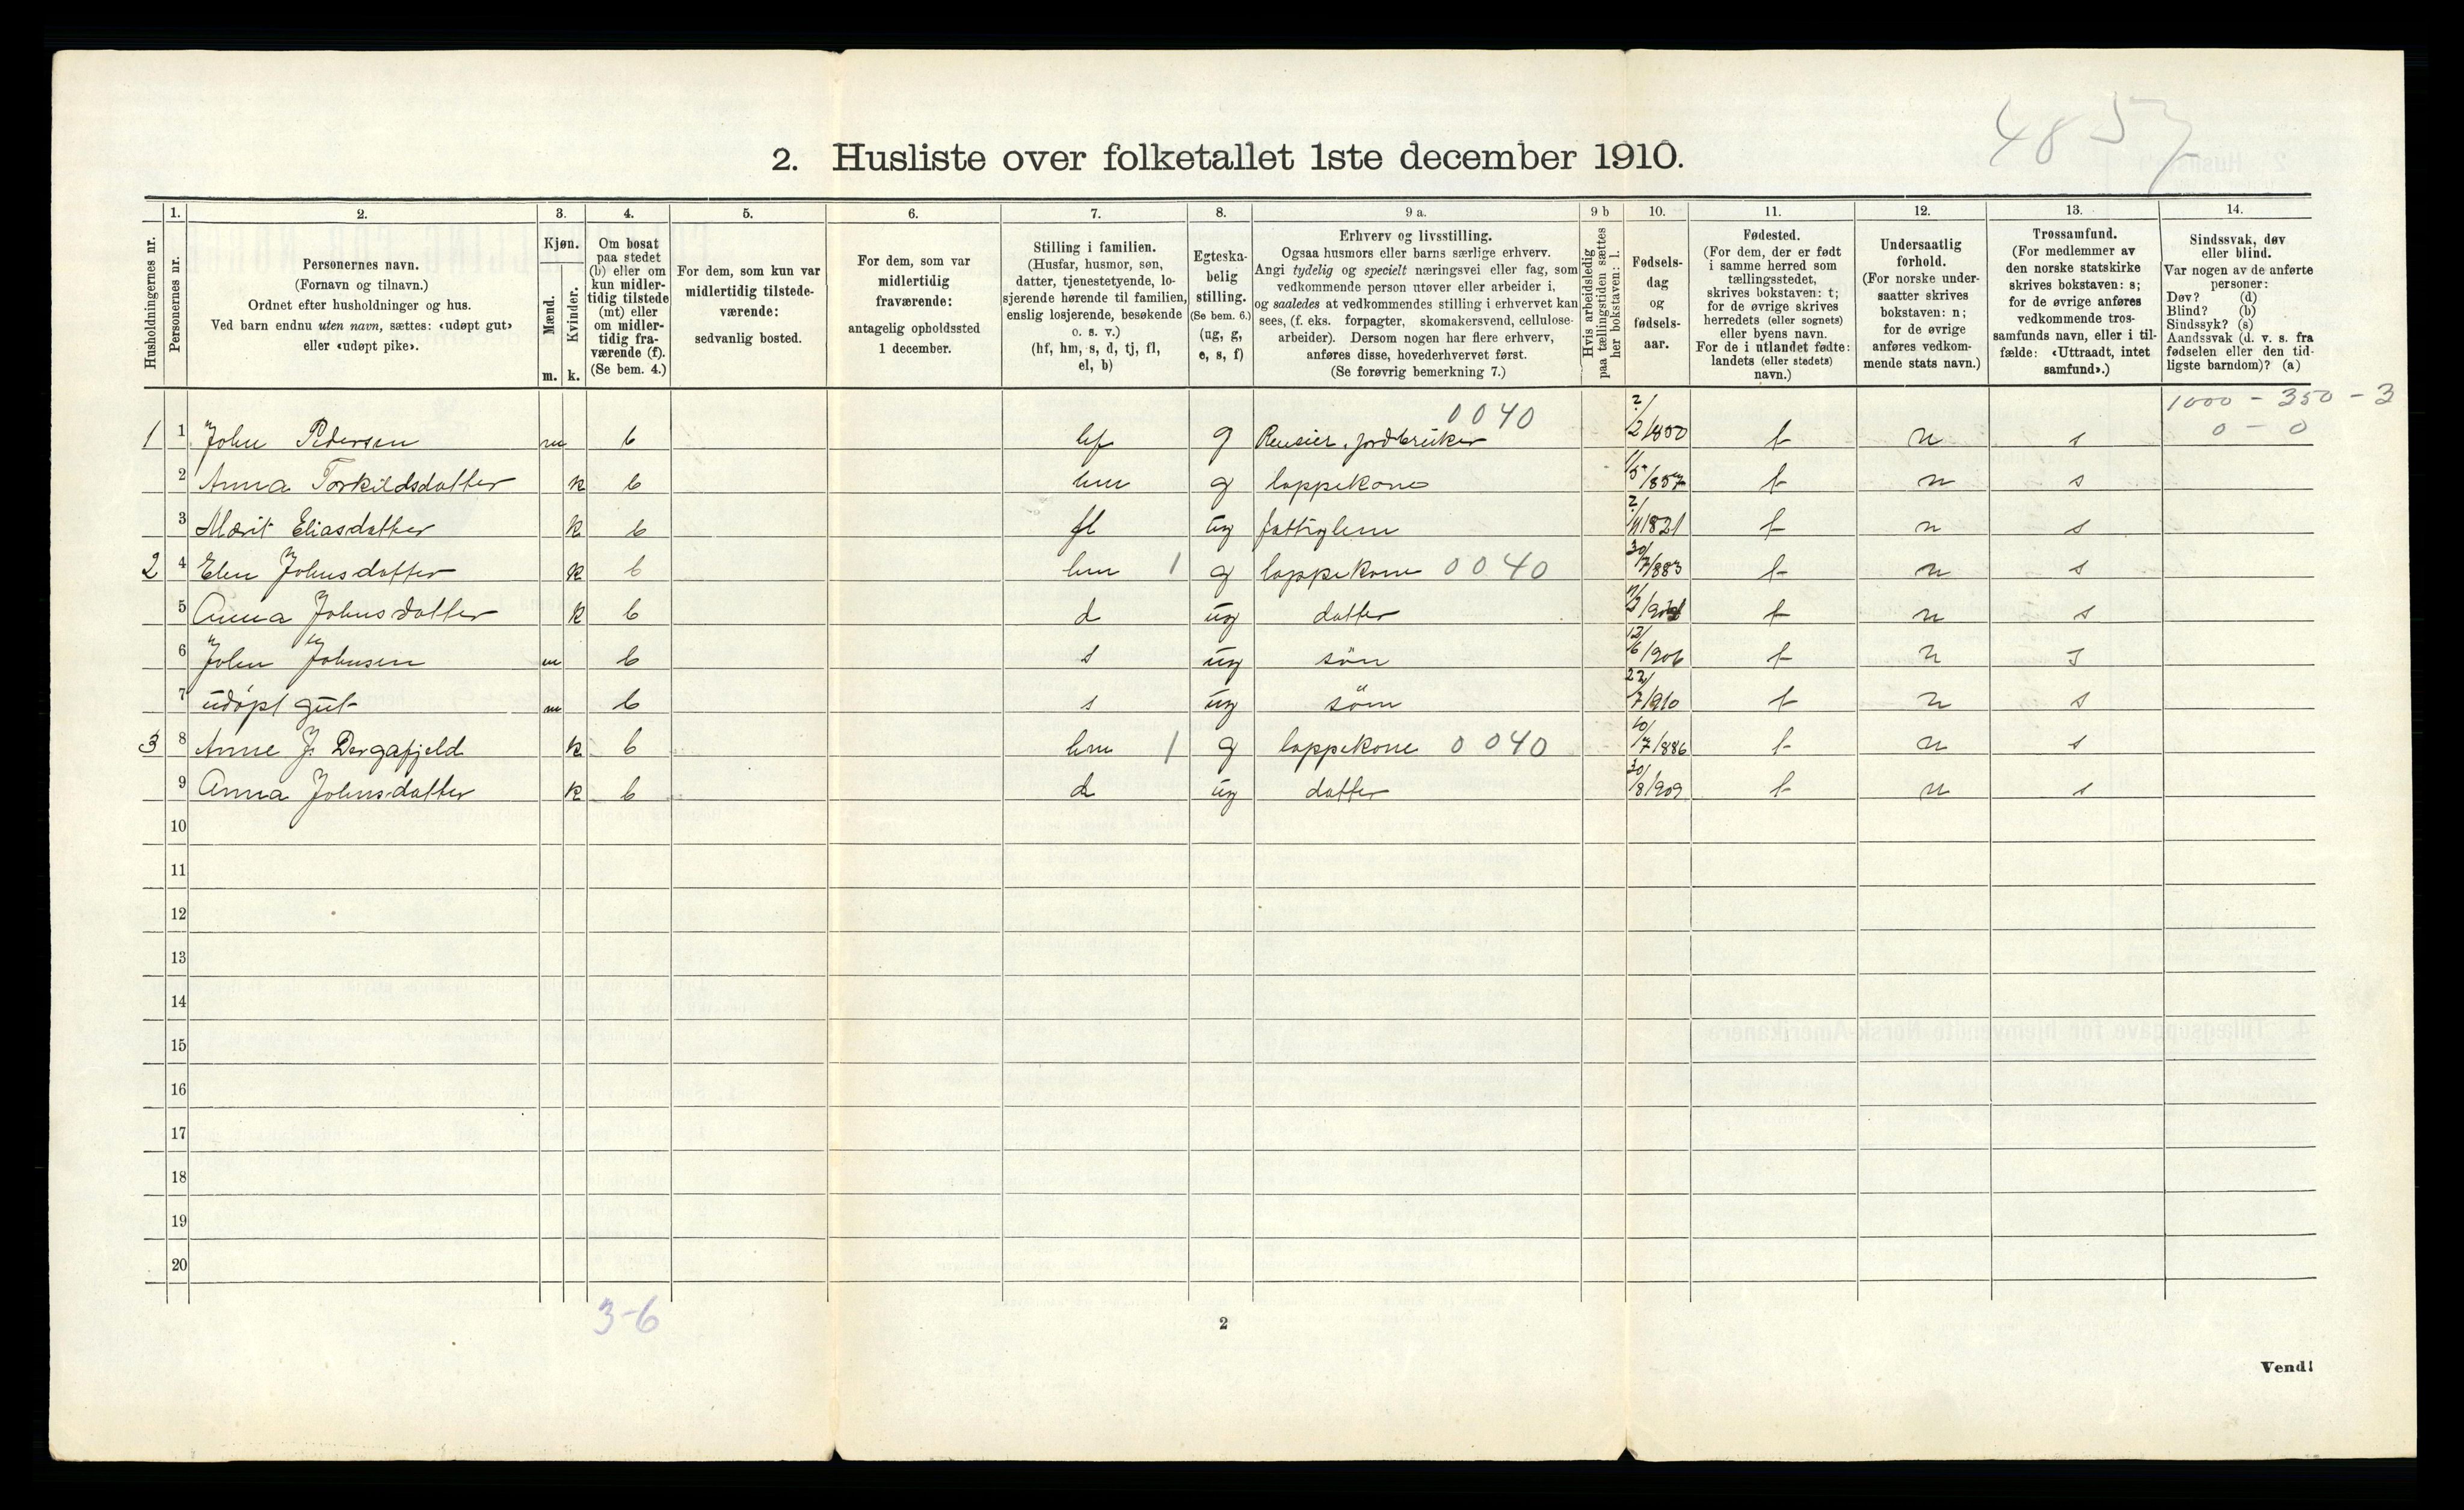 4857
2. Husliste over folketallet 1ste december 1910.
Husholdningernes nr.
1. Personernes nr.
2. Personernes navn.
(Fornavn og tilnavn.)
Ordnet efter husholdninger og hus.
Ved barn endnu uten navn, sættes: «udøpt gut»
eller «udøpt pike».
3. Kjøn.
Mænd. m.
Kvinder. k.
4. Om bosat
paa stedet
(b) eller om
kun midler-
tidig tilstede
(mt) eller
om midler-
tidig fra-
værende (f).
(Se bem. 4.)
5. For dem, som kun var
midlertidig tilstede-
værende:
sedvanlig bosted.
6. For dem, som var
midlertidig
fraværende:
antagelig opholdssted
1 december.
7. Stilling i familien.
(Husfar, husmor, søn,
datter, tjenestetyende, lo-
sjerende hørende til familien,
enslig losjerende, besøkende
o. s. v.)
(hf, hm, s, d, tj, fl,
el, b)
8. Egteska-
belig
stilling.
(Se bem. 6.)
(ug, g,
e, s, f)
9 a. Erhverv og livsstilling.
Ogsaa husmors eller barns særlige erhverv.
Angi tydelig og specielt næringsvei eller fag, som
vedkommende person utøver eller arbeider i,
og saaledes at vedkommendes stilling i erhvervet kan
sees, (f. eks. forpagter, skomakersvend, cellulose-
arbeider). Dersom nogen har flere erhverv,
anføres disse, hovederhvervet først.
(Se forøvrig bemerkning 7.)
9 b Hvis arbeidsledig
paa tællingstiden sættes
her bokstaven: l.
10. Fødsels-
dag
og
fødsels-
aar.
11. Fødested.
(For dem, der er født
i samme herred som
tællingsstedet,
skrives bokstaven: t;
for de øvrige skrives
herredets (eller sognets)
eller byens navn.
For de i utlandet fødte:
landets (eller stedets)
navn.)
12. Undersaatlig
forhold.
(For norske under-
saatter skrives
bokstaven: n;
for de øvrige
anføres vedkom-
mende stats navn.)
13. Trossamfund.
(For medlemmer av
den norske statskirke
skrives bokstaven: s;
for de øvrige anføres
vedkommende tros-
samfunds navn, eller i til-
fælde: «Uttraadt, intet
samfund».)
14. Sindssvak, døv
eller blind.
Var nogen av de anførte
personer:
Døv? (d)
Blind? (b)
Sindssyk? (s)
Aandssvak (d. v. s. fra
fødselen eller den tid-
ligste barndom)? (a)
1000 - 350 - 3
0 - 0
0040
1 1 John Pedersen m b hf g jordbruiker t n s
2 Anna Torkildsdatter k b hm g lappekone 1/5 1857 t n s
3 Marit Eliasdatter k b fl ug fattiglem t n s
2 4 Elen Johnsdatter k b hm 1 g lappekone 0040 30/7 1883 t n s
5 Anna Johnsdatter k b d ug datter t n s
6 John Johnsen m b s ug sön 12/6 1906 t n s
7 udöpt gut m b s ug sön 22/7 1910 t n s
3 8 Anne J. Dergafjeld k b hm 1 g lappekone 0040 10/7 1886 t n s
9 Anna Johnsdatter k b d ug datter 30/8 1909 t n s
10
11
12
13
14
15
16
17
18
19
20
3-6
2
Vend!